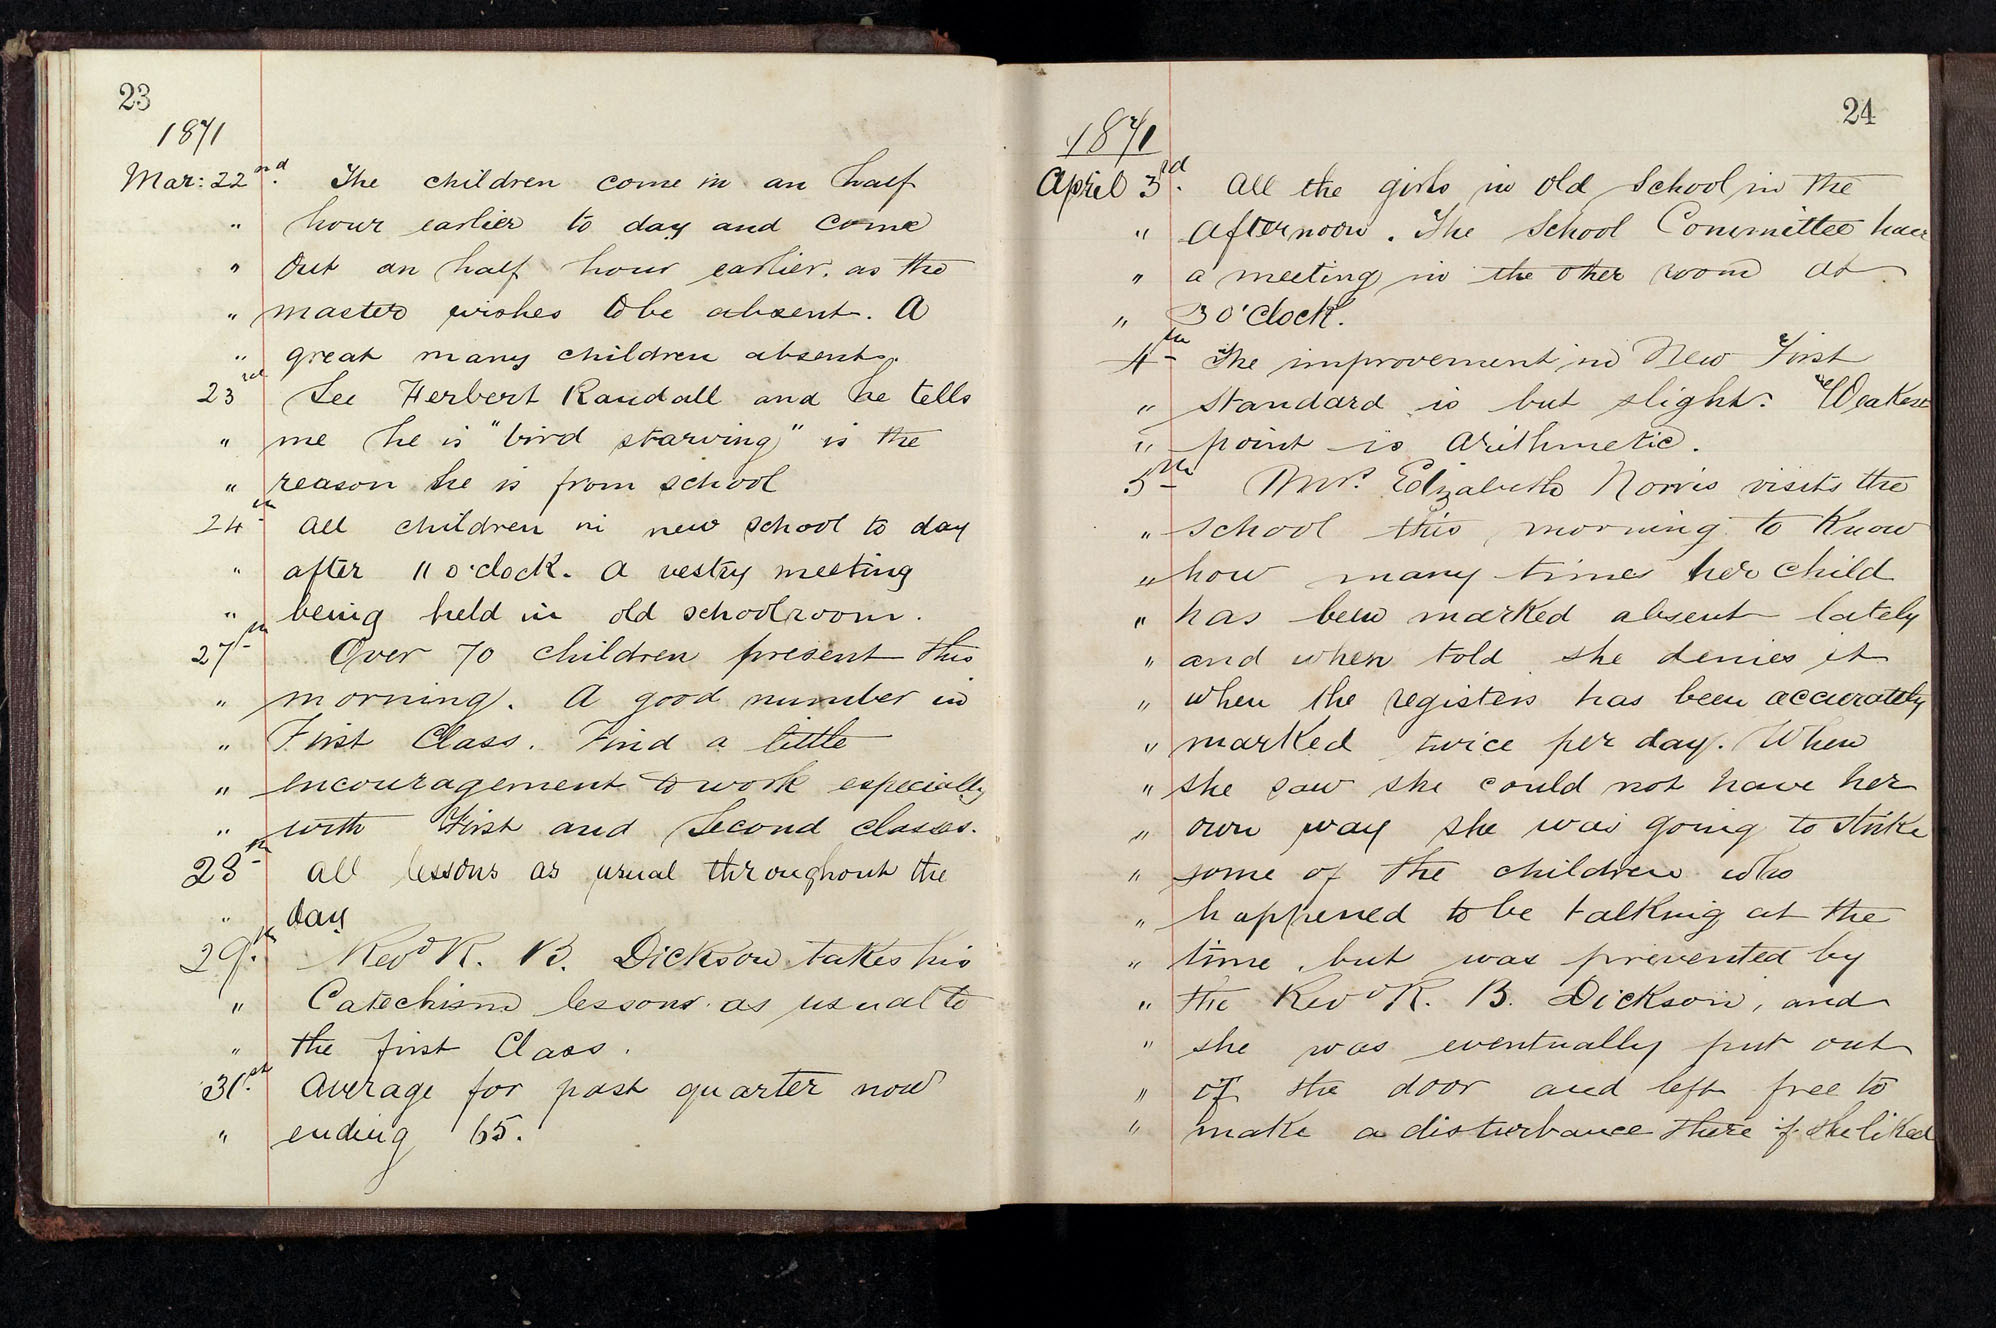 23
1871
Mar: 22nd. The children come in an half
" hour earlier to day and come
" out an half hour earlier. as the
" master wishes to be absent. A
" great many children absent.
23rd See Herbert Randall and he tells
" me he is "bird starving" is the
" reason he is from school
24th All children in new school to day
" after 11 o'clock. A vestry meeting
" being held in old schoolroom.
27th Over 70 children present this
" morning. A good number in
" First Class. Find a little
" encouragement to work especially
" with First and Second classes.
28th All lessons as usual throughout the
" day
29th. Revd R. B. Dickson takes his
" Catechism lessons as usual to
" the first Class.
31st. Average for past quarter now
" ending 65.
24
1871
April 3rd. All the girls in old School in the
" afternoon. The School Committee have
" a meeting in the other room at
" 3 o'clock.
4th The improvement in New First
" Standard is but slight. Weakest
" point is arithmetic.
5th Mrs. Elizabeth Norris visits the
" school this morning to know
" how many times her child
" has been marked absent lately
" and when told she denies it
" when the registers has been accurately
" marked twice per day. When
" she saw she could not have her
" own way she was going to strike
" some of the children who
" happened to be talking at the
" time, but was prevented by
" the Revd R. B. Dickson, and
" she was eventually put out
" of the door and left free to
" make a disturbance there if she liked